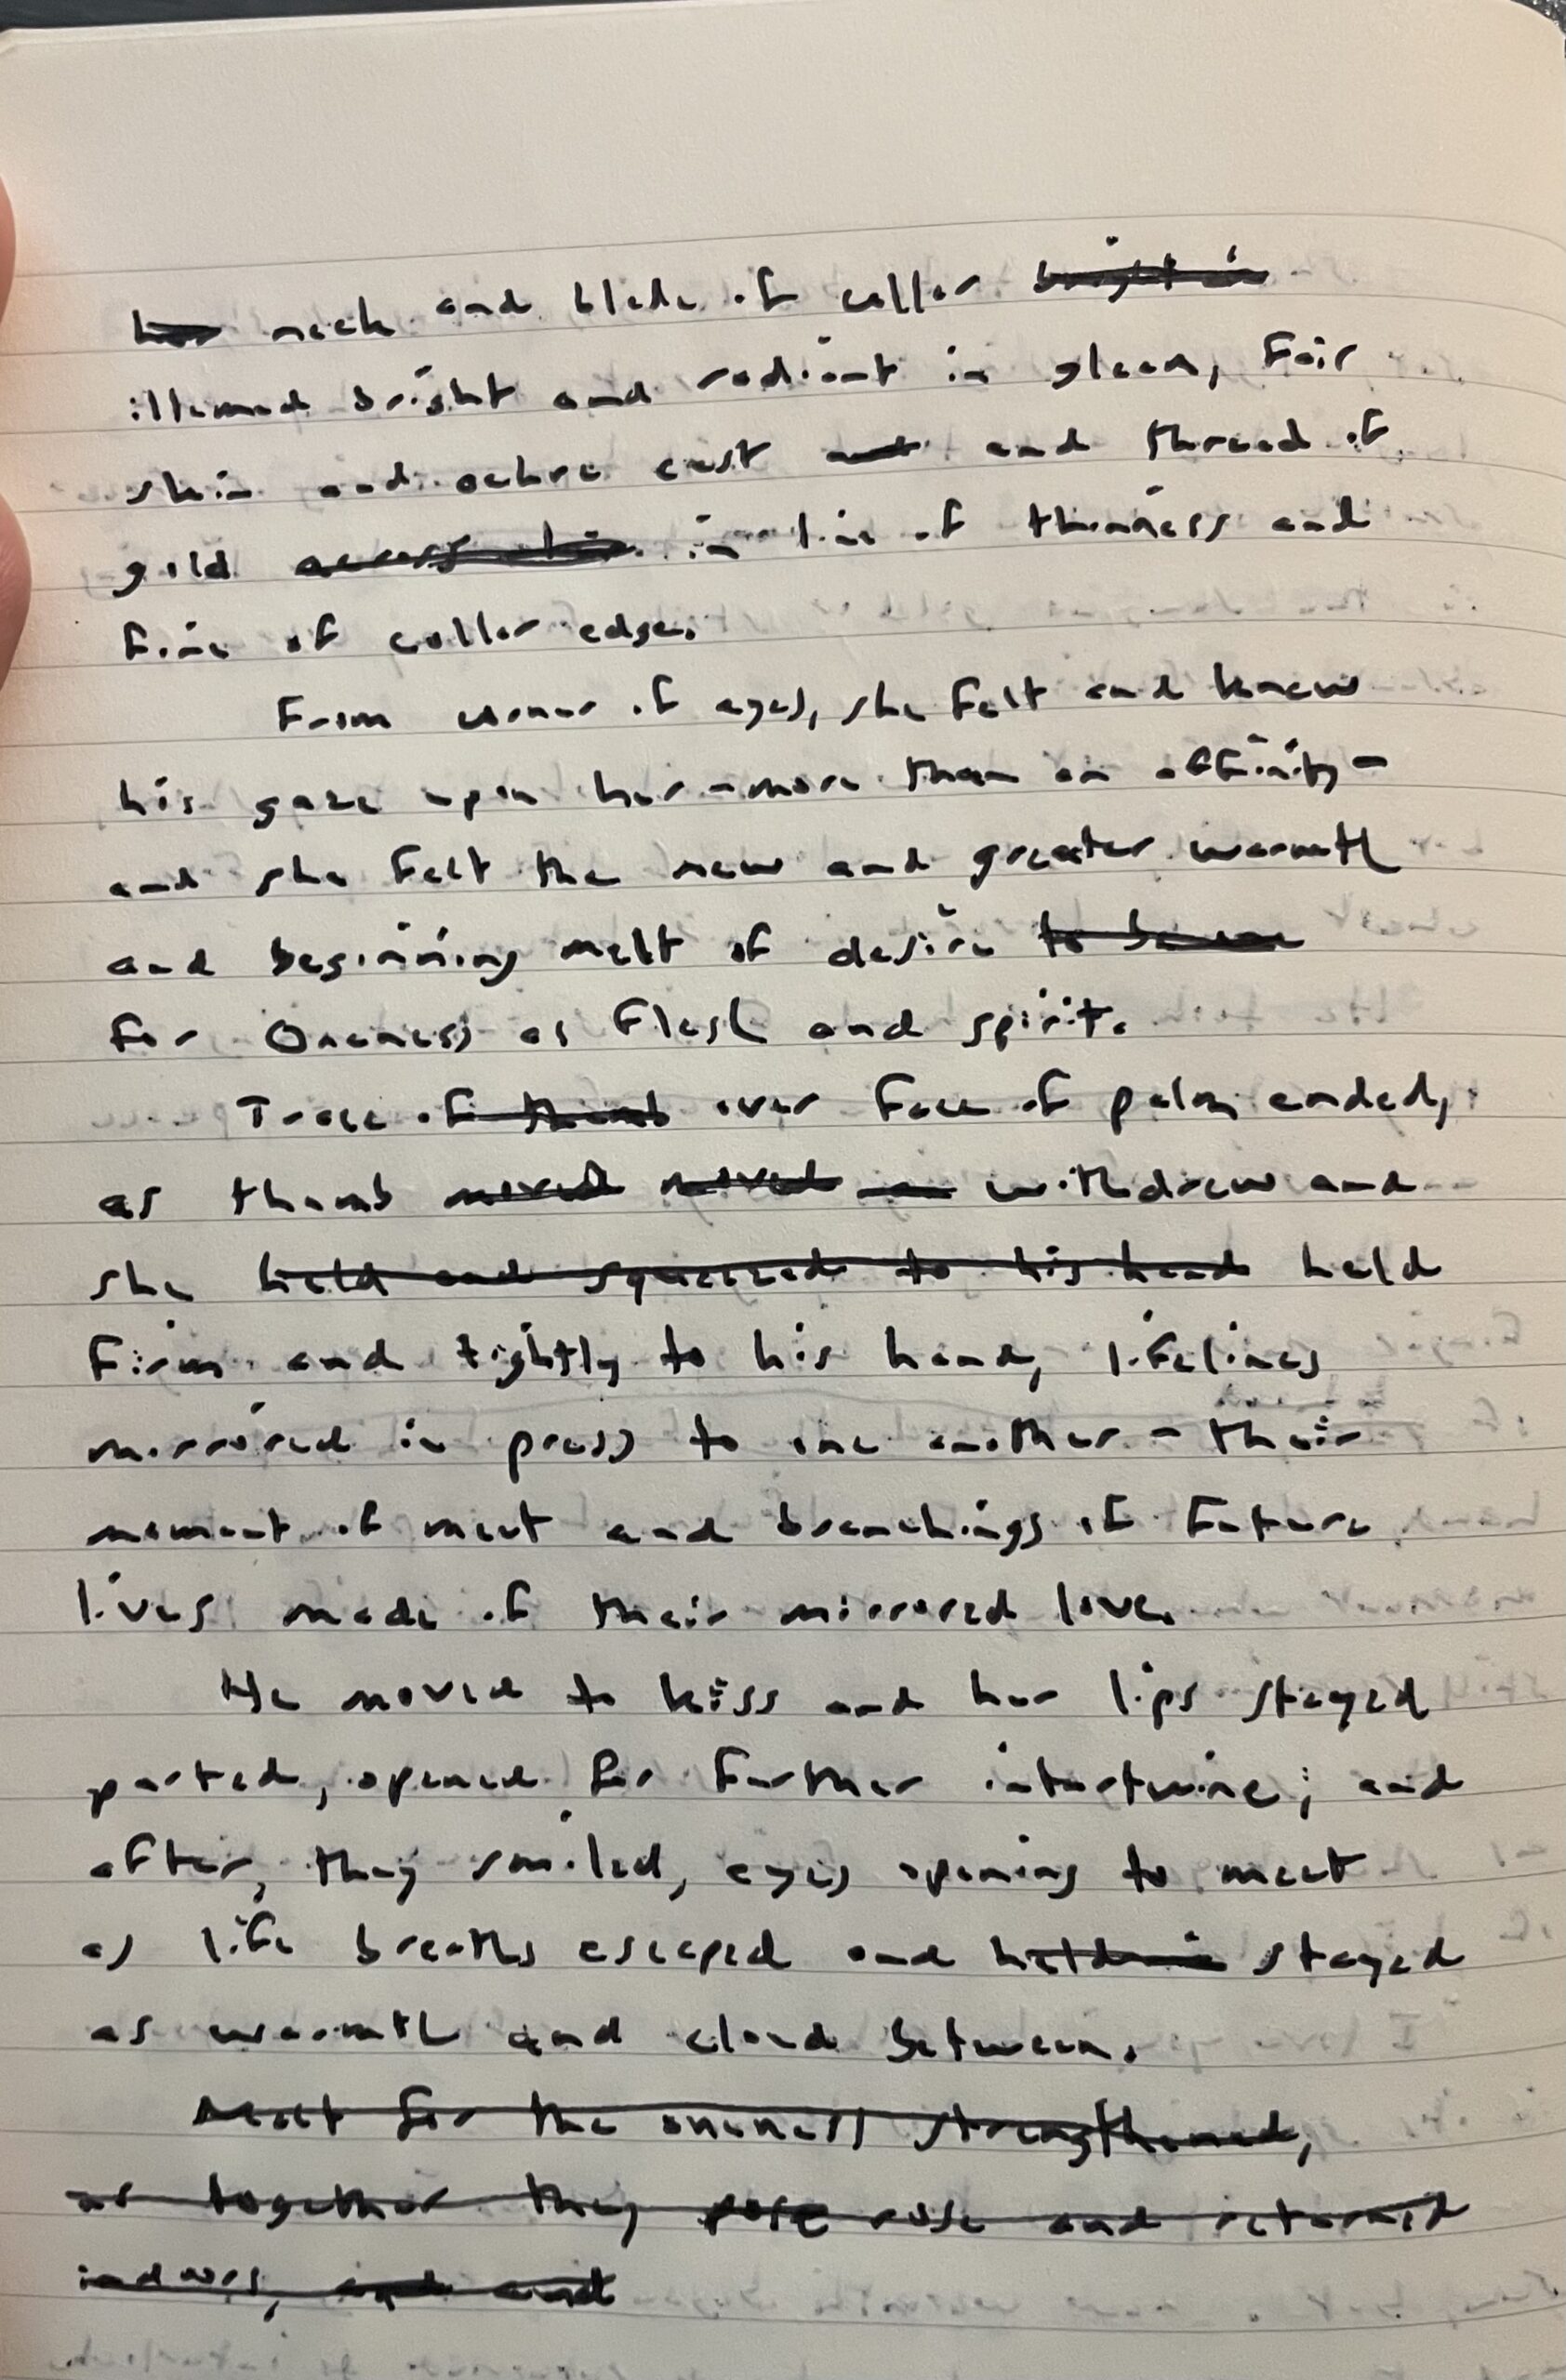 her neck and blade of collar bright in
illumed bright and radiant in gleam, fair
skin and ochre cast and thread of
gold across in line of thinness and
fine of collar edge.
From corner of eyes, she felt and knew
his gaze upon her - more than an affinity -
and she felt the new and greater warmth
and beginning melt of desire to become
for Oneness as flesh and spirit.
Trace of thumb over face of palm ended,
as thumb moved moved withdrew and
she held and squeezed to his hand held
firm and tightly to his hand, lifelines
mirrored in press to one another - their
moment of meet and branchings of future
lives made of their mirrored love.
He moved to kiss and her lips stayed
parted, opened for further intertwine; and
after, they smiled, eyes opening to meet
as life breaths escaped and held in stayed
as warmth and cloud between.
Melt for the oneness strengthened,
as together they rose rose and returned
indoors, and and